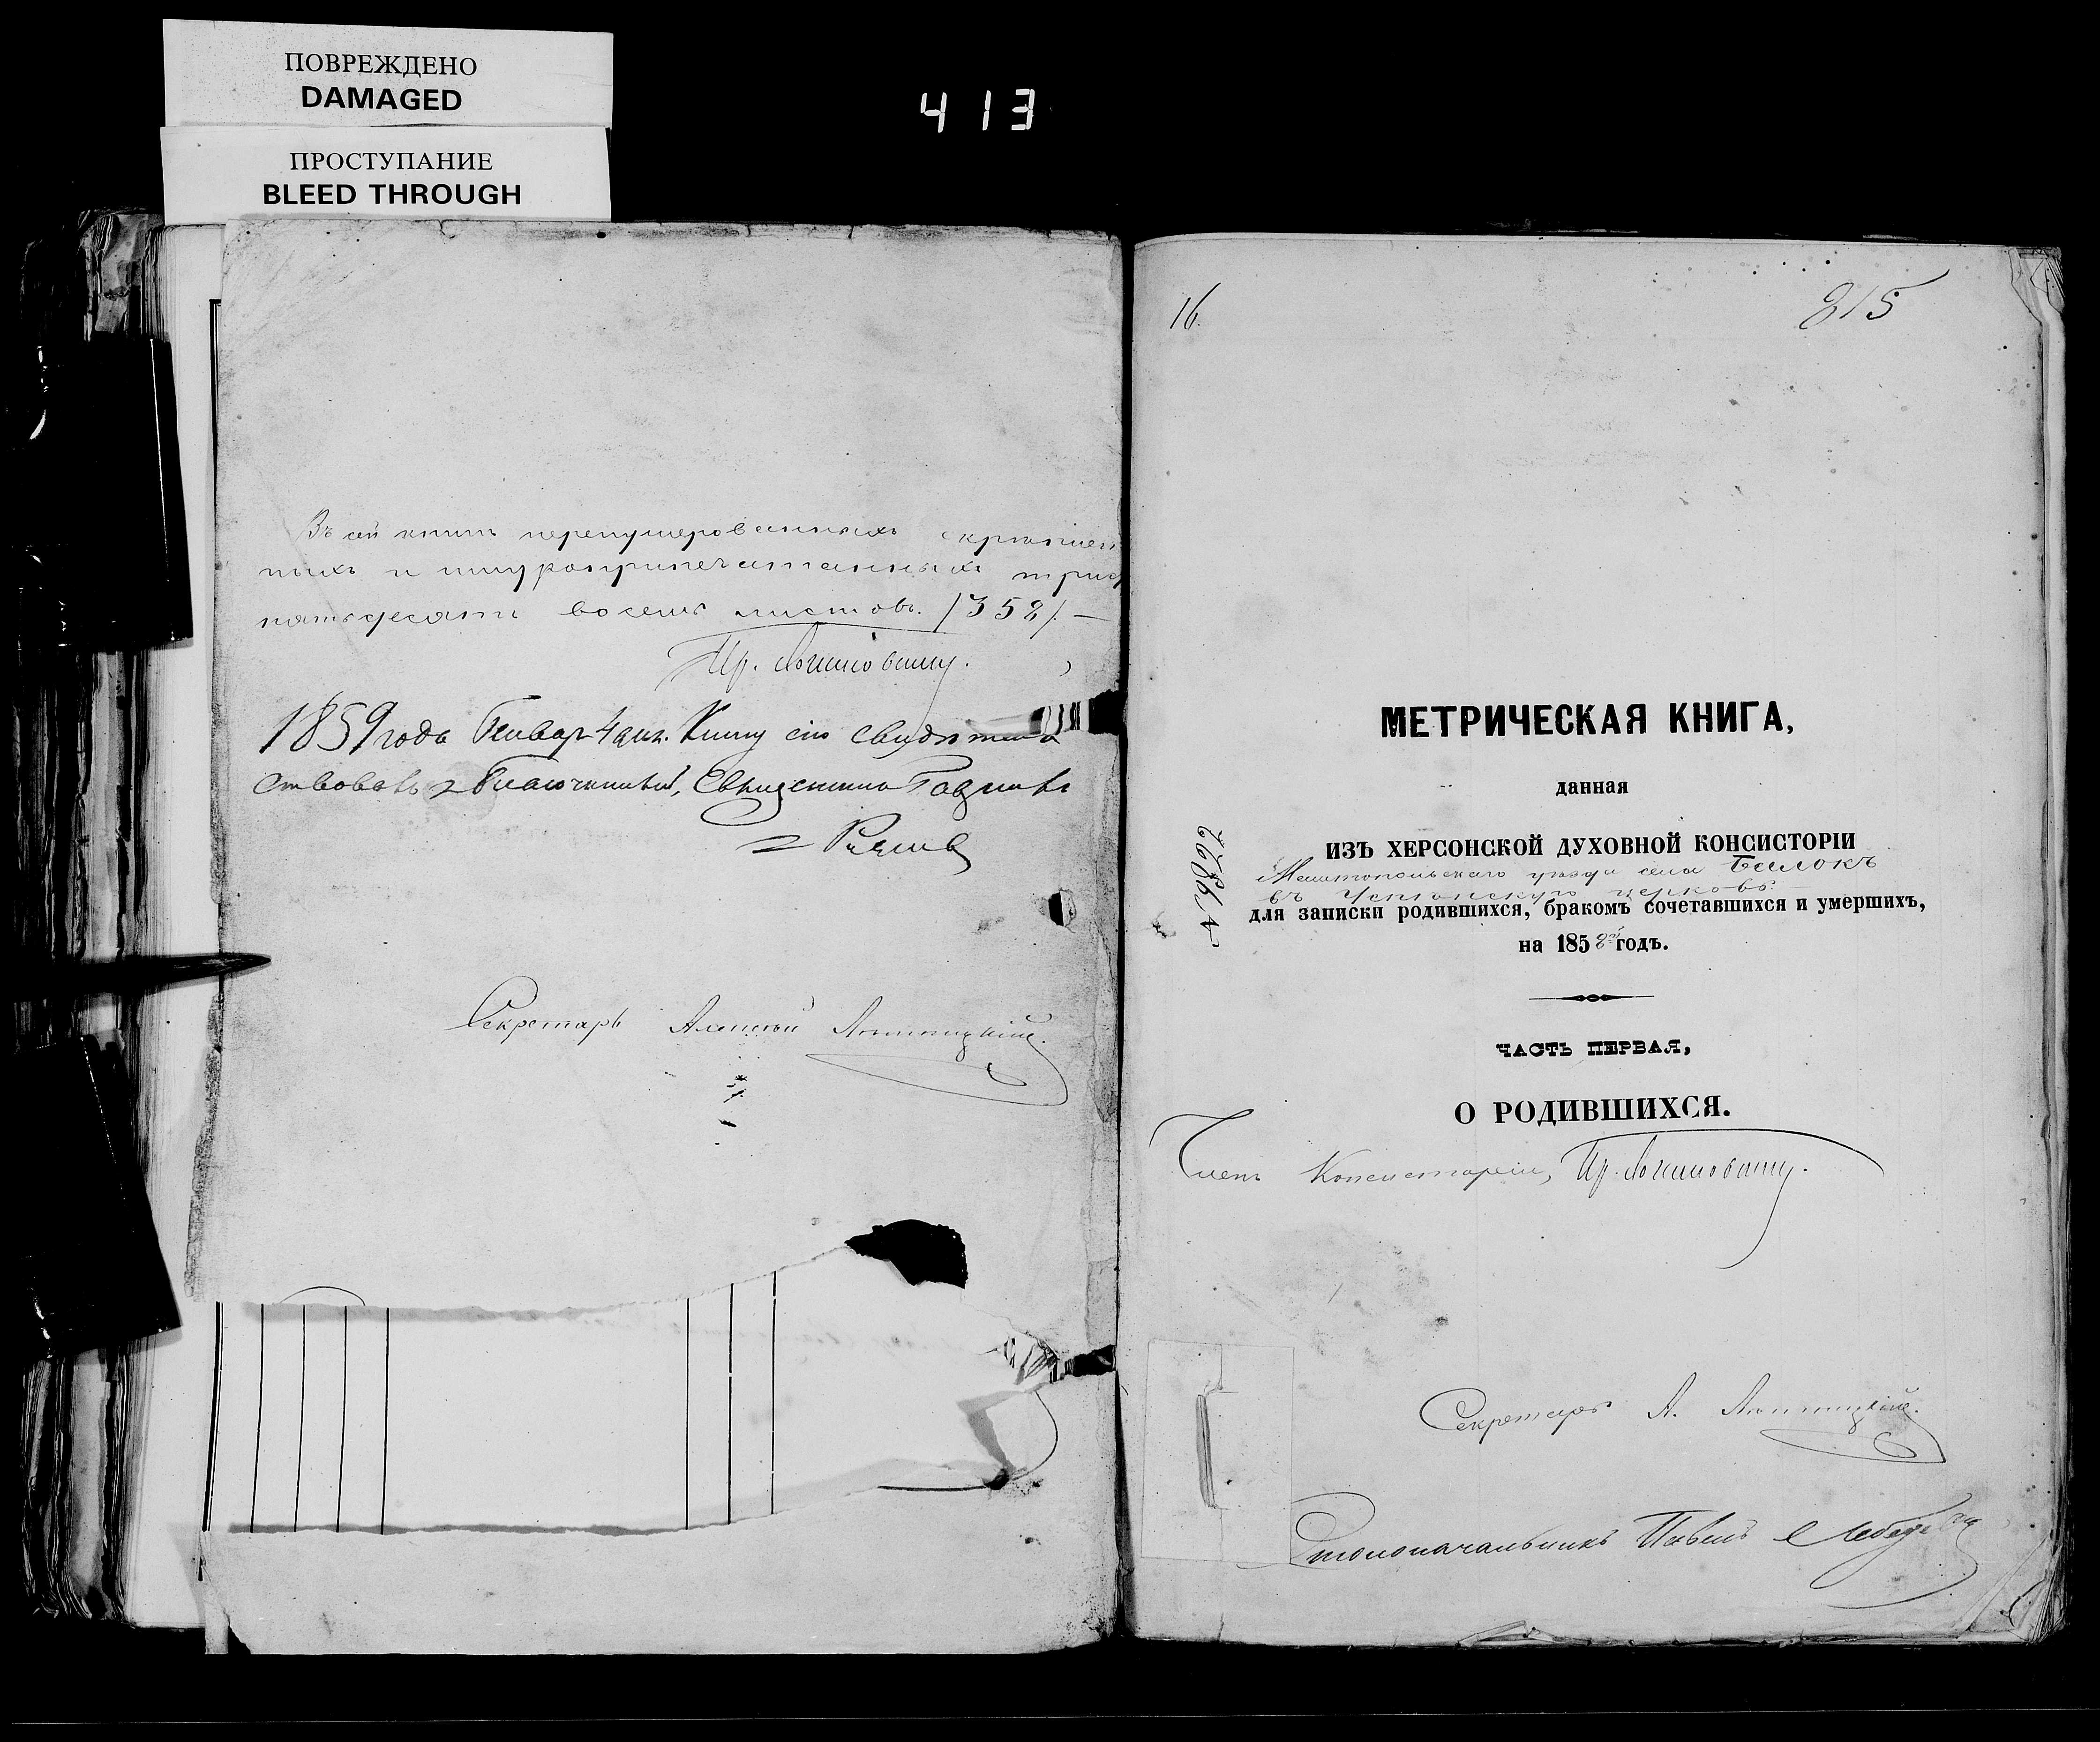 ПОВРЕЖДЕНО
DAMAGED
ПРОСТУПАНИЕ
BLEED THROUGH
413
Въ сей книгѣ перенумерованныхъ скрѣплен
ныхъ и шнуроприпечатанныхъ
пятьдесятъ восемь листовъ. /358/. —
1859 года Генвар 4 дня. Книгу сію свидѣтель
ствовалъ Благочинный, Священникъ
Секретарь Алексѣй
16.
815
МЕТРИЧЕСКАЯ КНИГА,
данная
ИЗЪ ХЕРСОНСКОЙ ДУХОВНОЙ КОНСИСТОРІИ
Мелитопольскаго уѣзда села Бѣлокъ
въ Успенскую церковь
для записки родившихся, бракомъ сочетавшихся и умершихъ,
на 1858й годъ.
ЧАСТЬ ПЕРВАЯ,
О РОДИВШИХСЯ.
Членъ Консисторіи,
Секретарь А.
Столоначальникъ Павелъ Лебедевъ